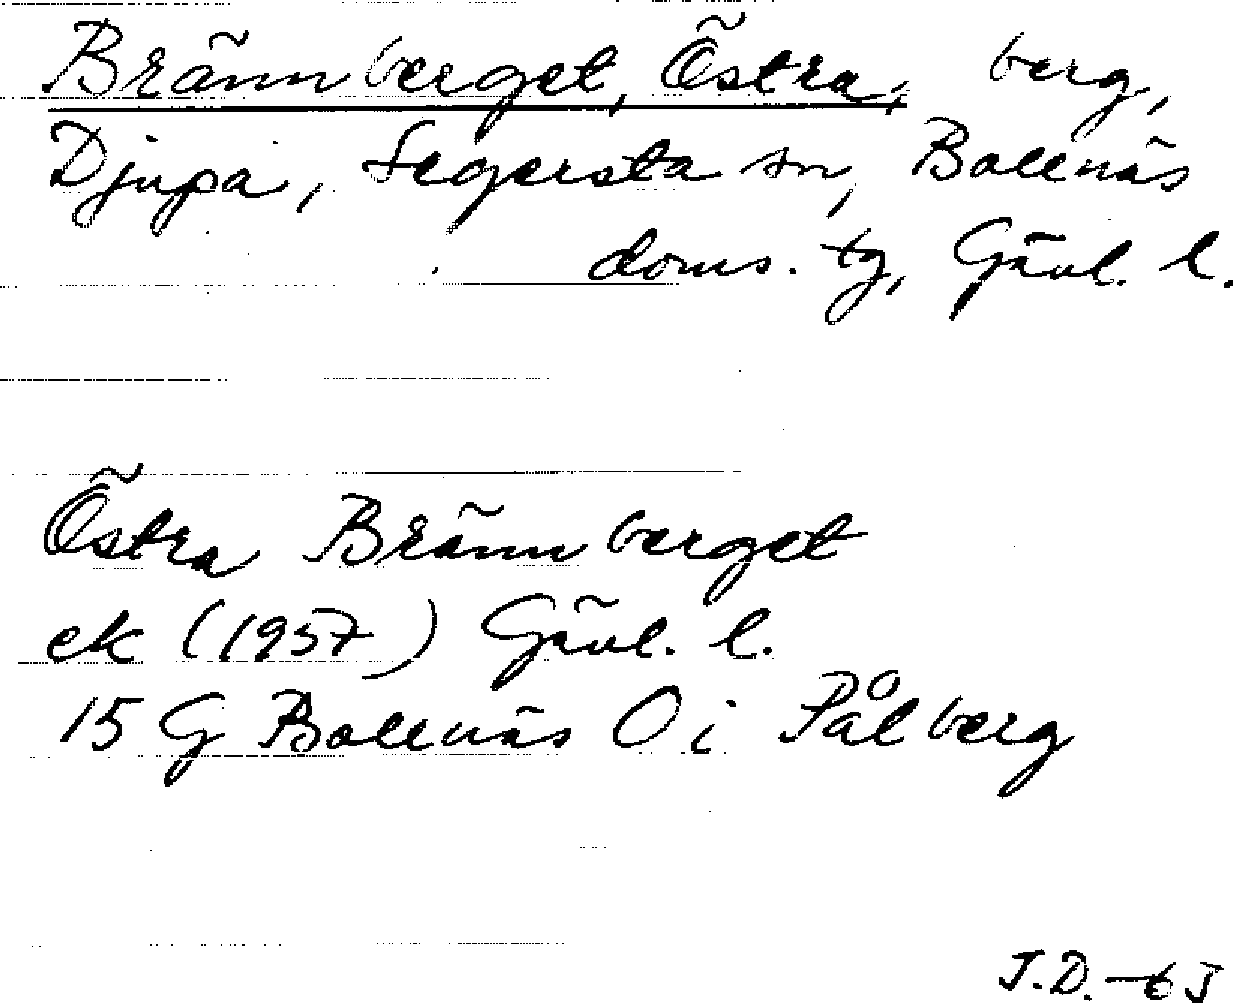 Brännberget, Östra, berg,
Djupa, Segersta sn, Bollnäs
doms. tg, Gävl. l.
Östra Brännberget
ek (1957) Gävl. l.
15 G Bollnäs O i Pålberg
J.D.